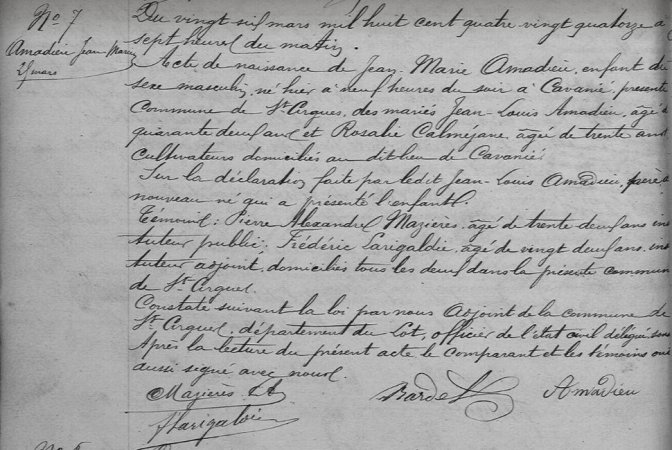 No 7
Amadieu Jean Marie
mars
Du vingt six mars mil huit cent quatre vingt quatorze à
sept heures du matin.
Acte de naissance de Jean Marie Amadieu, enfant du
sexe masculin, né hier à neuf heures du soir à Cavanié, présente
Commune de St Cirgues, des mariés Jean-Louis Amadieu, âgé de
quarante deux ans et Rosalie Calmejane, âgée de trente ans
cultivateurs domiciliés au dit lieu de Cavanié.
Sur la déclaration faite par ledit Jean-Louis Amadieu, père du
nouveau né qui a présenté l'enfant.
Témoins: Pierre Alexandre Mazières, âgé de trente deux ans ins
tuteur public; Frédéric Larigaldie, âgé de vingt deux ans, ins
tuteur adjoint, domiciliés tous les deux dans la présente commune
de St Cirgues.
Constaté suivant la loi par nous Adjoint de la commune de
St Cirgues, département du Lot, officier de l'état civil délégué
Après la lecture du présent acte le comparant et les témoins ont
aussi signé avec nous.
Mazières Bardet Amadieu
Larigaldie
No